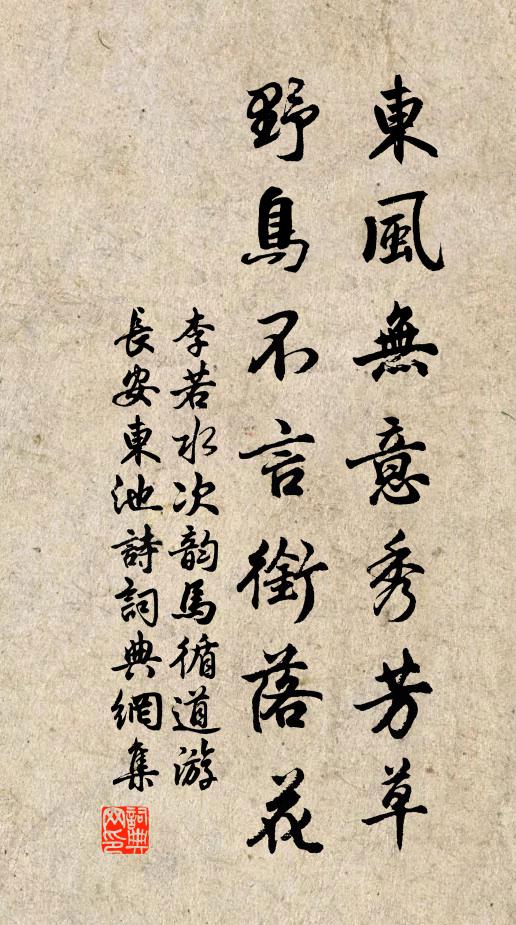 東風無意秀芳草
野鳥不言銜落花
李若水次韵馬循道游
長安東池詩詞典網集
詞典
网印